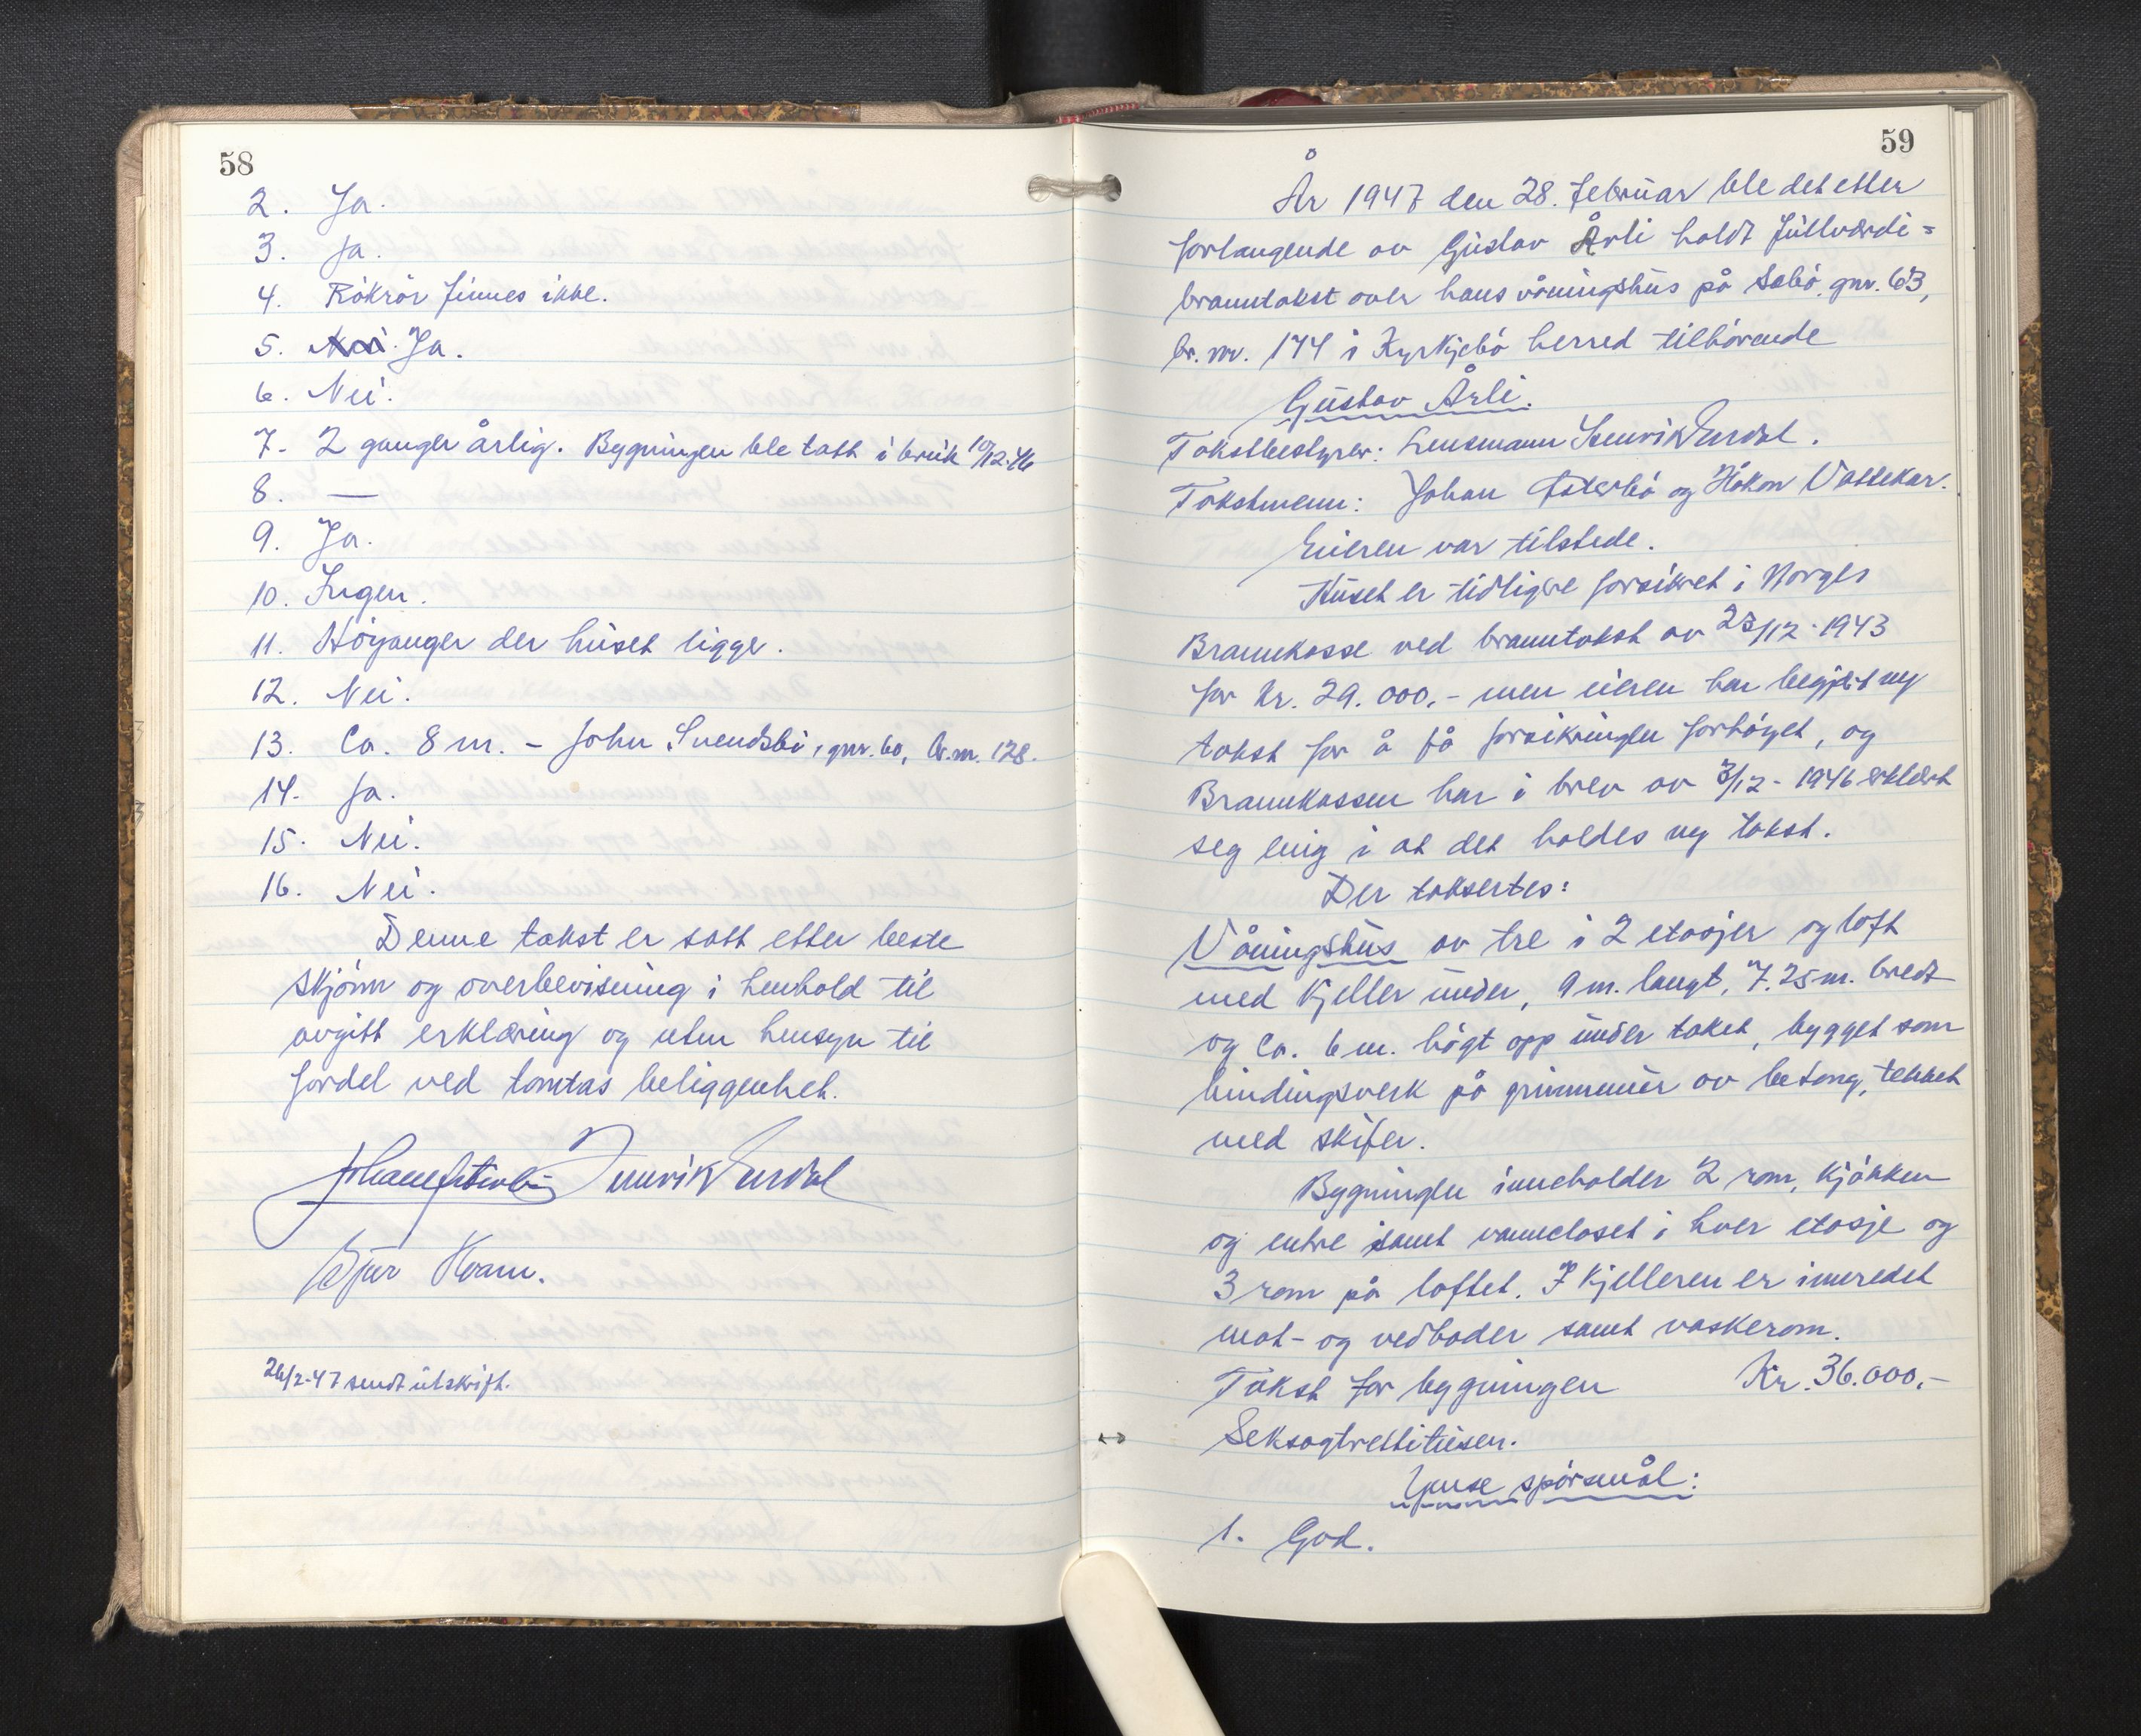 58
2. Ja.
3. Ja.
4. Rökrör finnes ikke.
5. Nei. Ja.
6. Nei.
7. 2 ganger årlig. Bygningen ble tatt i bruk 10/12-46
8. —
9. Ja.
10. Ingen.
11. Höyanger der huset ligger.
12. Nei.
13. Ca. 8 m. - John Svendsbö, gnr. 60, br.nr. 128.
14. Ja.
15. Nei.
16. Nei.
Denne takst er satt etter beste
skjönn og overbevisning i henhold til
avgitt erklæring og uten hensyn til
fordel ved tomtas beliggenhet.
Johan Österbö Henrik Erdal
Sjur Kvam.
26/2-47 sendt utskrift.
59
År 1947 den 28. februar ble det etter
forlangende av Gustav Årli holdt fullverdi=
branntakst over hans våningshus på Sæbö, gnr. 63,
br. nr. 144 i Kyrkjebö herred tilhörende
Gustav Årli.
Takstbestyrer: Lensmann Henrik Erdal.
Takstmenn: Johan Österbö og Håkon Vattekar.
Eieren var tilstede.
Huset er tidligere forsikret i Norges
Brannkasse ved branntakst av 23/12-1943
for kr. 29.000,- men eieren har begjært ny
takst for å få forsikringen forhöyet, og
Brannkassen har i brev av 3/12-1946 erklært
seg enig i at det holdes ny takst.
Der taksertes:
Våningshus av tre i 2 etasjer og loft
med kjeller under, 9 m. langt, 7.25 m. bredt
og ca. 6 m. högt opp under taket, bygget som
bindingsverk på grunnmur av betong, tekket
med skifer.
Bygningen inneholder 2 rom, kjökken
og entre samt vanncloset i hver etasje og
3 rom på loftet. I kjelleren er innredet
mat- og vedboder samt vaskerom.
Takst for bygningen Kr. 36.000,-
Seksogtrettitusen.
Ymse spörsmål:
1. God.